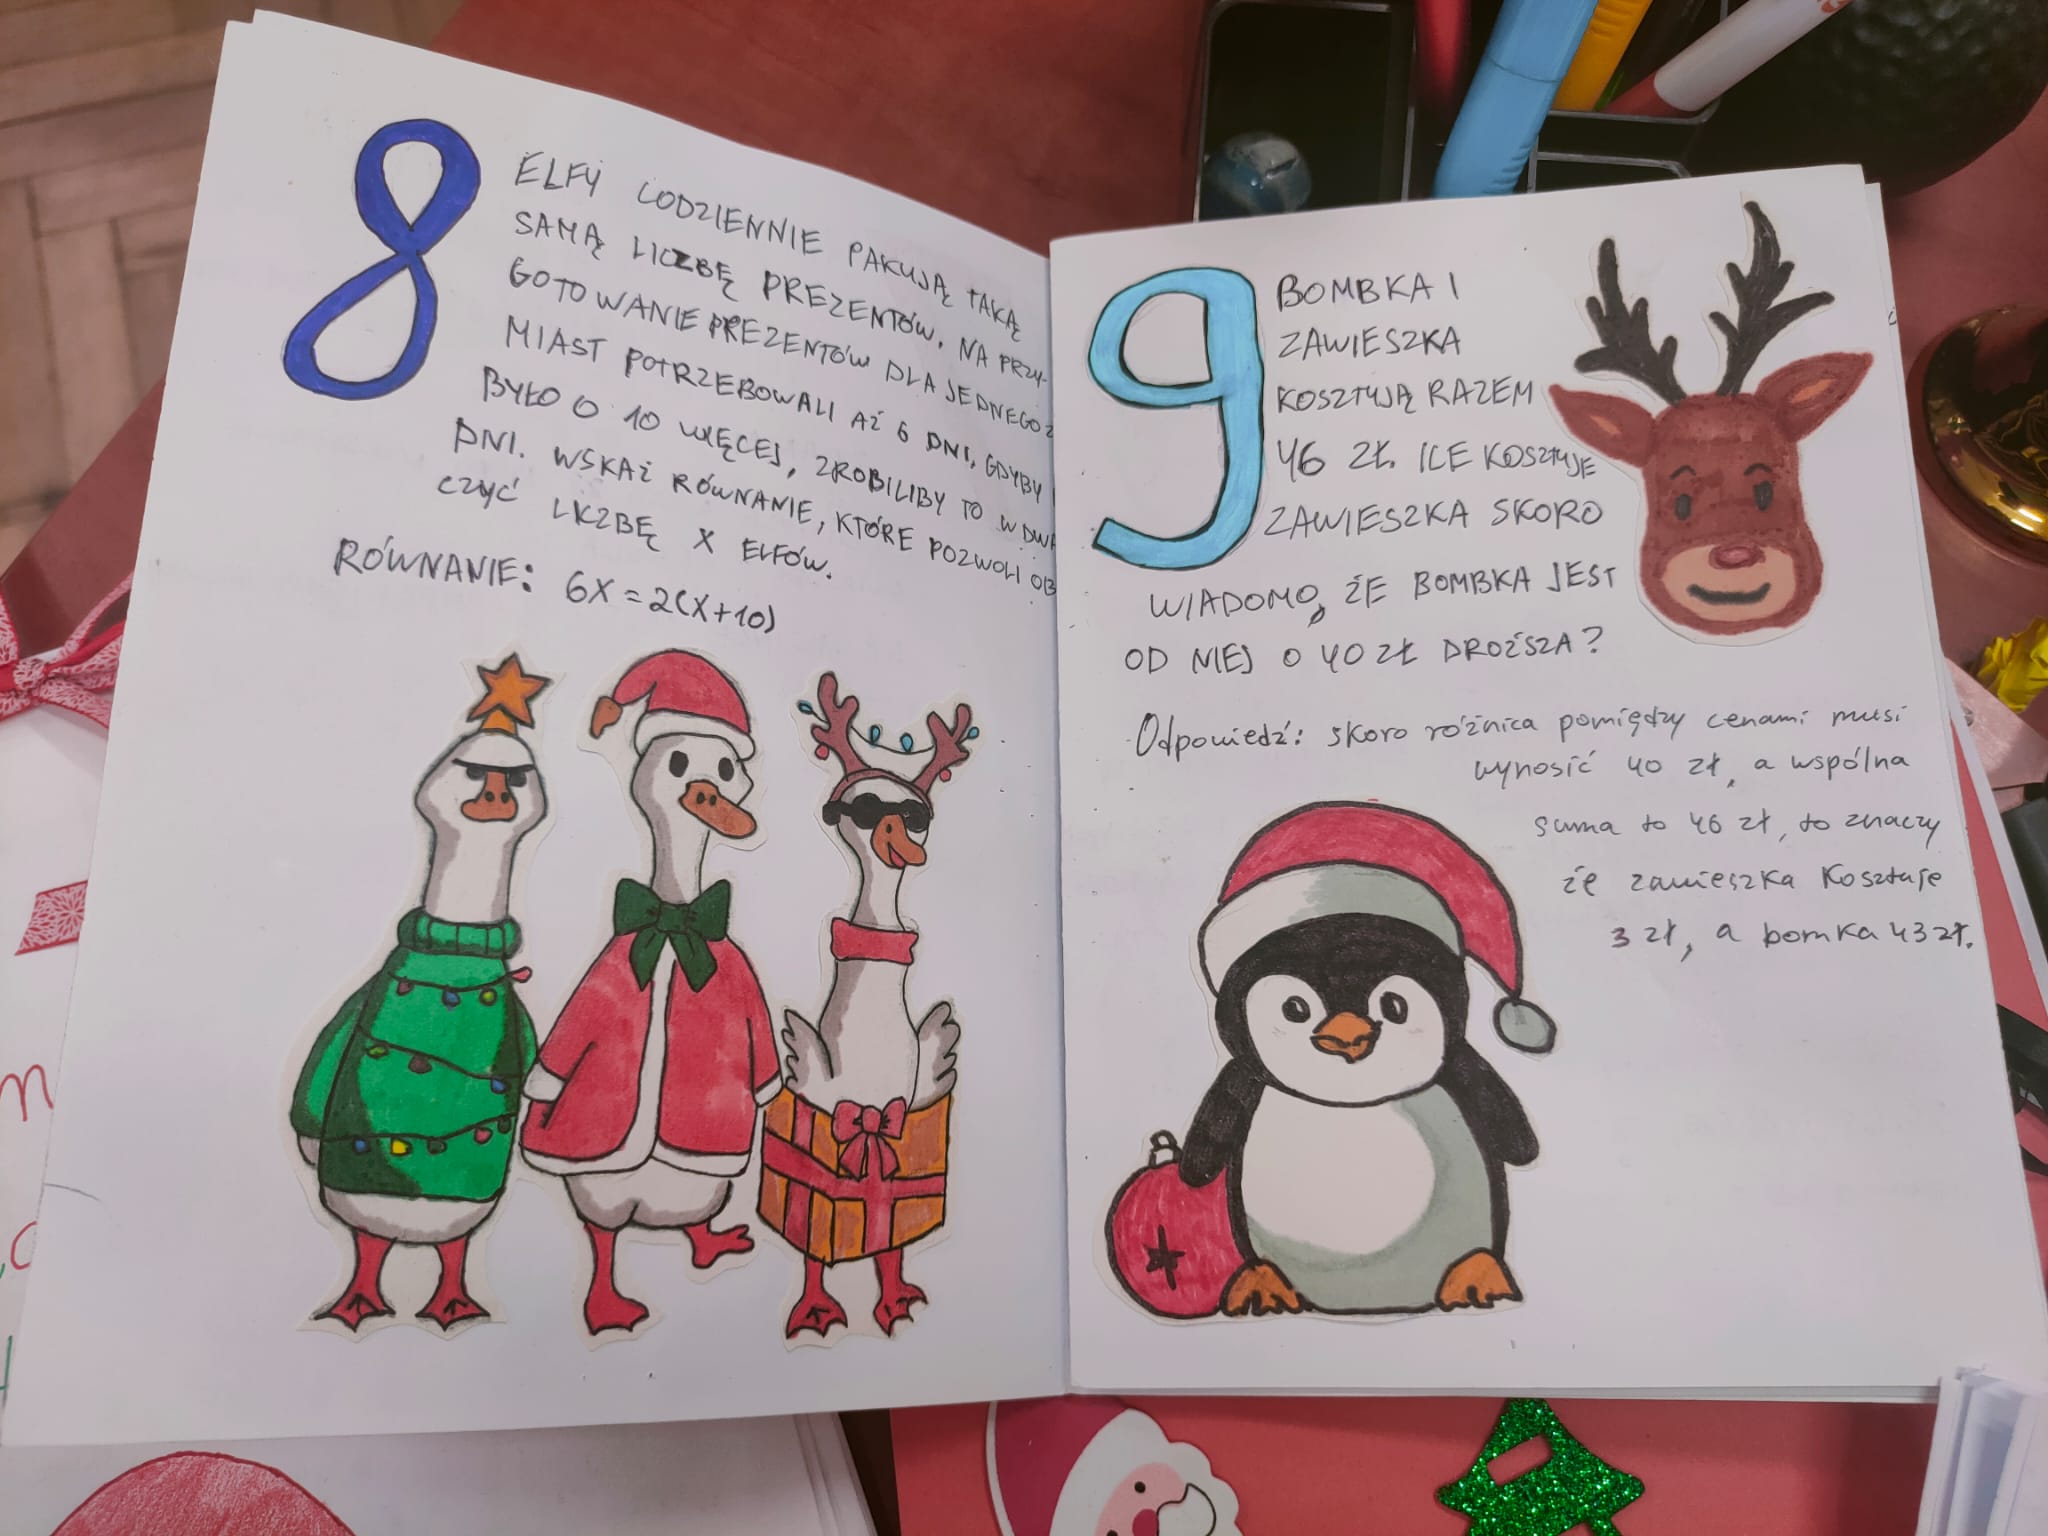 8
ELFY CODZIENNIE PAKUJĄ TAKĄ
SAMĄ LICZBĘ PREZENTÓW. NA PRZY-
GOTOWANIE PREZENTÓW DLA JEDNEGO Z
MIAST POTRZEBOWALI AŻ 6 DNI, GDYBY
BYŁO O 10 WIĘCEJ, ZROBILIBY TO W DWA
DNI. WSKAŻ RÓWNANIE, KTÓRE POZWOLI OB
CZYĆ LICZBĘ X ELFÓW.
RÓWNANIE: 6X = 2(X+10)
9
BOMBKA I
ZAWIESZKA
KOSZTUJĄ RAZEM
46 ZŁ. ILE KOSZTUJE
ZAWIESZKA SKORO
WIADOMO, ŻE BOMBKA JEST
OD NIEJ O 40 ZŁ DROŻSZA?
Odpowiedź: skoro różnica pomiędzy cenami musi
wynosić 40 zł, a wspólna
suma to 46 zł, to znaczy
że zawieszka kosztuje
3 zł, a bomka 43 zł.